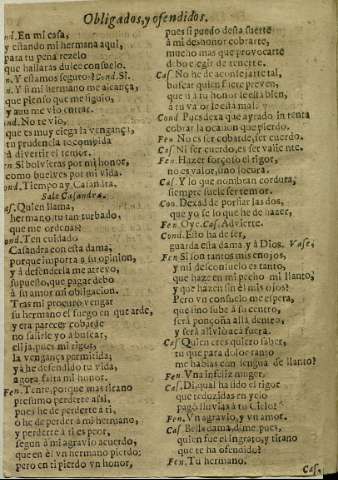 Obligados, y ofendidos.
En mi casa,
y estando mi hermana aquì,
para tu pena rezelo
que hallaras dulce consuelo.
Y estamos seguro? Cond. Si.
Y si mi hermano me alcança,
que pienso que me siguio,
y aun me vio entrar.
No te vio,
que es muy ciega la vengança,
tu prudencia
a divertir el temor.
Si bolvieras por mi honor,
como buelves por mi vida.
Tiempo ay, Casandra.
Sale Casandra.
Quien llama,
hermano, tu tan turbado,
que me ordenas?
Ten cuidado
Casandra con esta dama,
porque importa a su opinion,
y à defenderla me atrevo,
supuesto, que pagar debo
à su amor mi obligacion.
Tras mi procuro vengar
su hermano el fuego en que arde,
y era parecer cobarde
no salirle yo à buscar,
ella, pues mi rigor,
la vengança permitida,
yà he defendido tu vida,
agora falta mi honor.
Fen. Tente, porque mas ricano
presumo perderte assi,
pues he de perderte à ti,
o he de perder à mi hermano,
y perderte à ti es peor,
segun à mi agravio acuerdo,
que en èl vn hermano pierdo;
pero en ti pierdo vn honor,
pues si puedo desta suerte
à mi deshonor cobrarte,
mucho mas que provocarte
debo elegir de tenerte.
Cas. No he de aconsejarte tal,
buscar quien fuere preven,
que si à tu honor le està bien,
à tu valor le està mal.
Cond. Pues dexa que ayrado intenta
cobrar la ocasion que pierdo.
Fen. No es ser cobarde, ser cuerdo.
Cas. Ni ser cuerdo, es ser valiente.
Fen. Hazer forçoso el rigor,
no es valor, sino locura.
Cas. Y lo que nombran cordura,
siempre suele ser temor.
Con. Dexad de porfiar las dos,
que yo se lo que he de hazer,
Fen. Oye. Cas. Advierte.
Cond. Esto ha de ser,
guarda esta dama, y à Dios. Vase.
Fen. Si son tantos mis enojos,
y mi desconsuelo es tanto,
que haze en mi pecho mi llanto,
y que hazen sin èl mis ojos?
Pero vn consuelo me espera,
que sino sube à su centro,
serà ponçoña allà dentro,
y serà alivio acà fuera.
Cas. Quien eres quiero saber,
tu que para dolor tanto
me hablas con lengua de llanto?
Fen. Vna infeliz muger.
Cas. Di, qual ha sido el rigor
que reduzidas en yelo
pagò lluvias à tu Cielo?
Fen. Vn agravio, y vn amor.
Cas. Belleza dama, dime, pues,
quien fue el ingrato, y tirano
que te ha ofendido?
Fen. Tu hermano.
Cas.